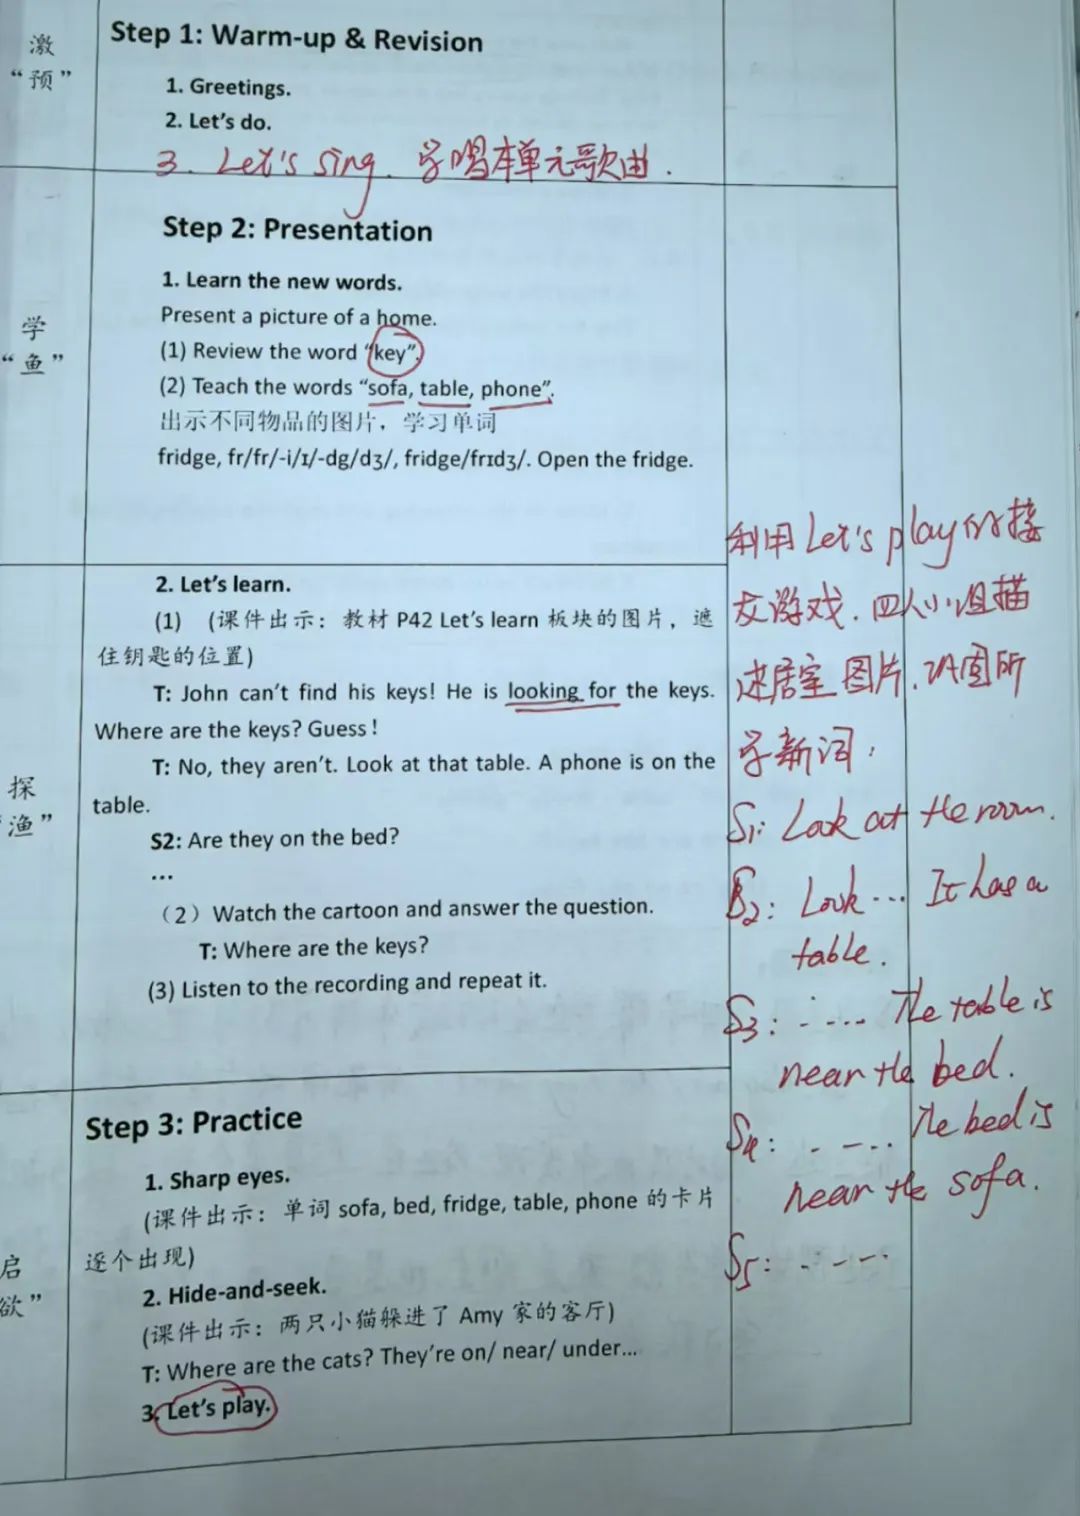 激
“预”
Step 1: Warm-up & Revision
1. Greetings.
2. Let's do.
3. Let's sing. 学唱本单元歌曲.
学
“鱼”
Step 2: Presentation
1. Learn the new words.
Present a picture of a home.
(1) Review the word “key”.
(2) Teach the words “sofa, table, phone”.
出示不同物品的图片，学习单词
fridge, fr/fr/-i/ɪ/-dg/dʒ/, fridge/frɪdʒ/. Open the fridge.
探
“渔”
2. Let's learn.
(1) (课件出示: 教材 P42 Let's learn 板块的图片，遮
住钥匙的位置)
T: John can't find his keys! He is looking for the keys.
Where are the keys? Guess!
T: No, they aren't. Look at that table. A phone is on the
table.
S2: Are they on the bed?
...
（2）Watch the cartoon and answer the question.
T: Where are the keys?
(3) Listen to the recording and repeat it.
利用 Let's play 的接
龙游戏. 四人小组描
述居室图片. 巩固所
学新词:
S1: Look at the room.
S2: Look ... It has a
table.
S3: ..... The table is
near the bed.
S4: . — ... The bed is
near the sofa.
S5: . . — .
启
欲”
Step 3: Practice
1. Sharp eyes.
(课件出示: 单词 sofa, bed, fridge, table, phone 的卡片
逐个出现)
2. Hide-and-seek.
(课件出示: 两只小猫躲进了 Amy 家的客厅)
T: Where are the cats? They're on/ near/ under...
3. Let's play.